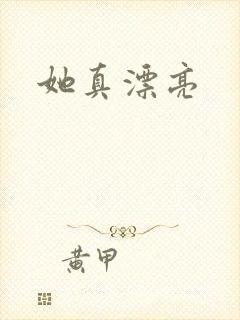 她真漂亮
黄甲